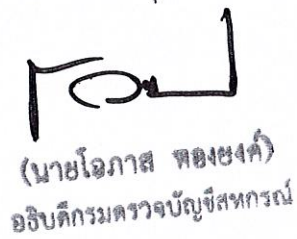 (นายโอภาส ทองยงค์)
อธิบดีกรมตรวจบัญชีสหกรณ์